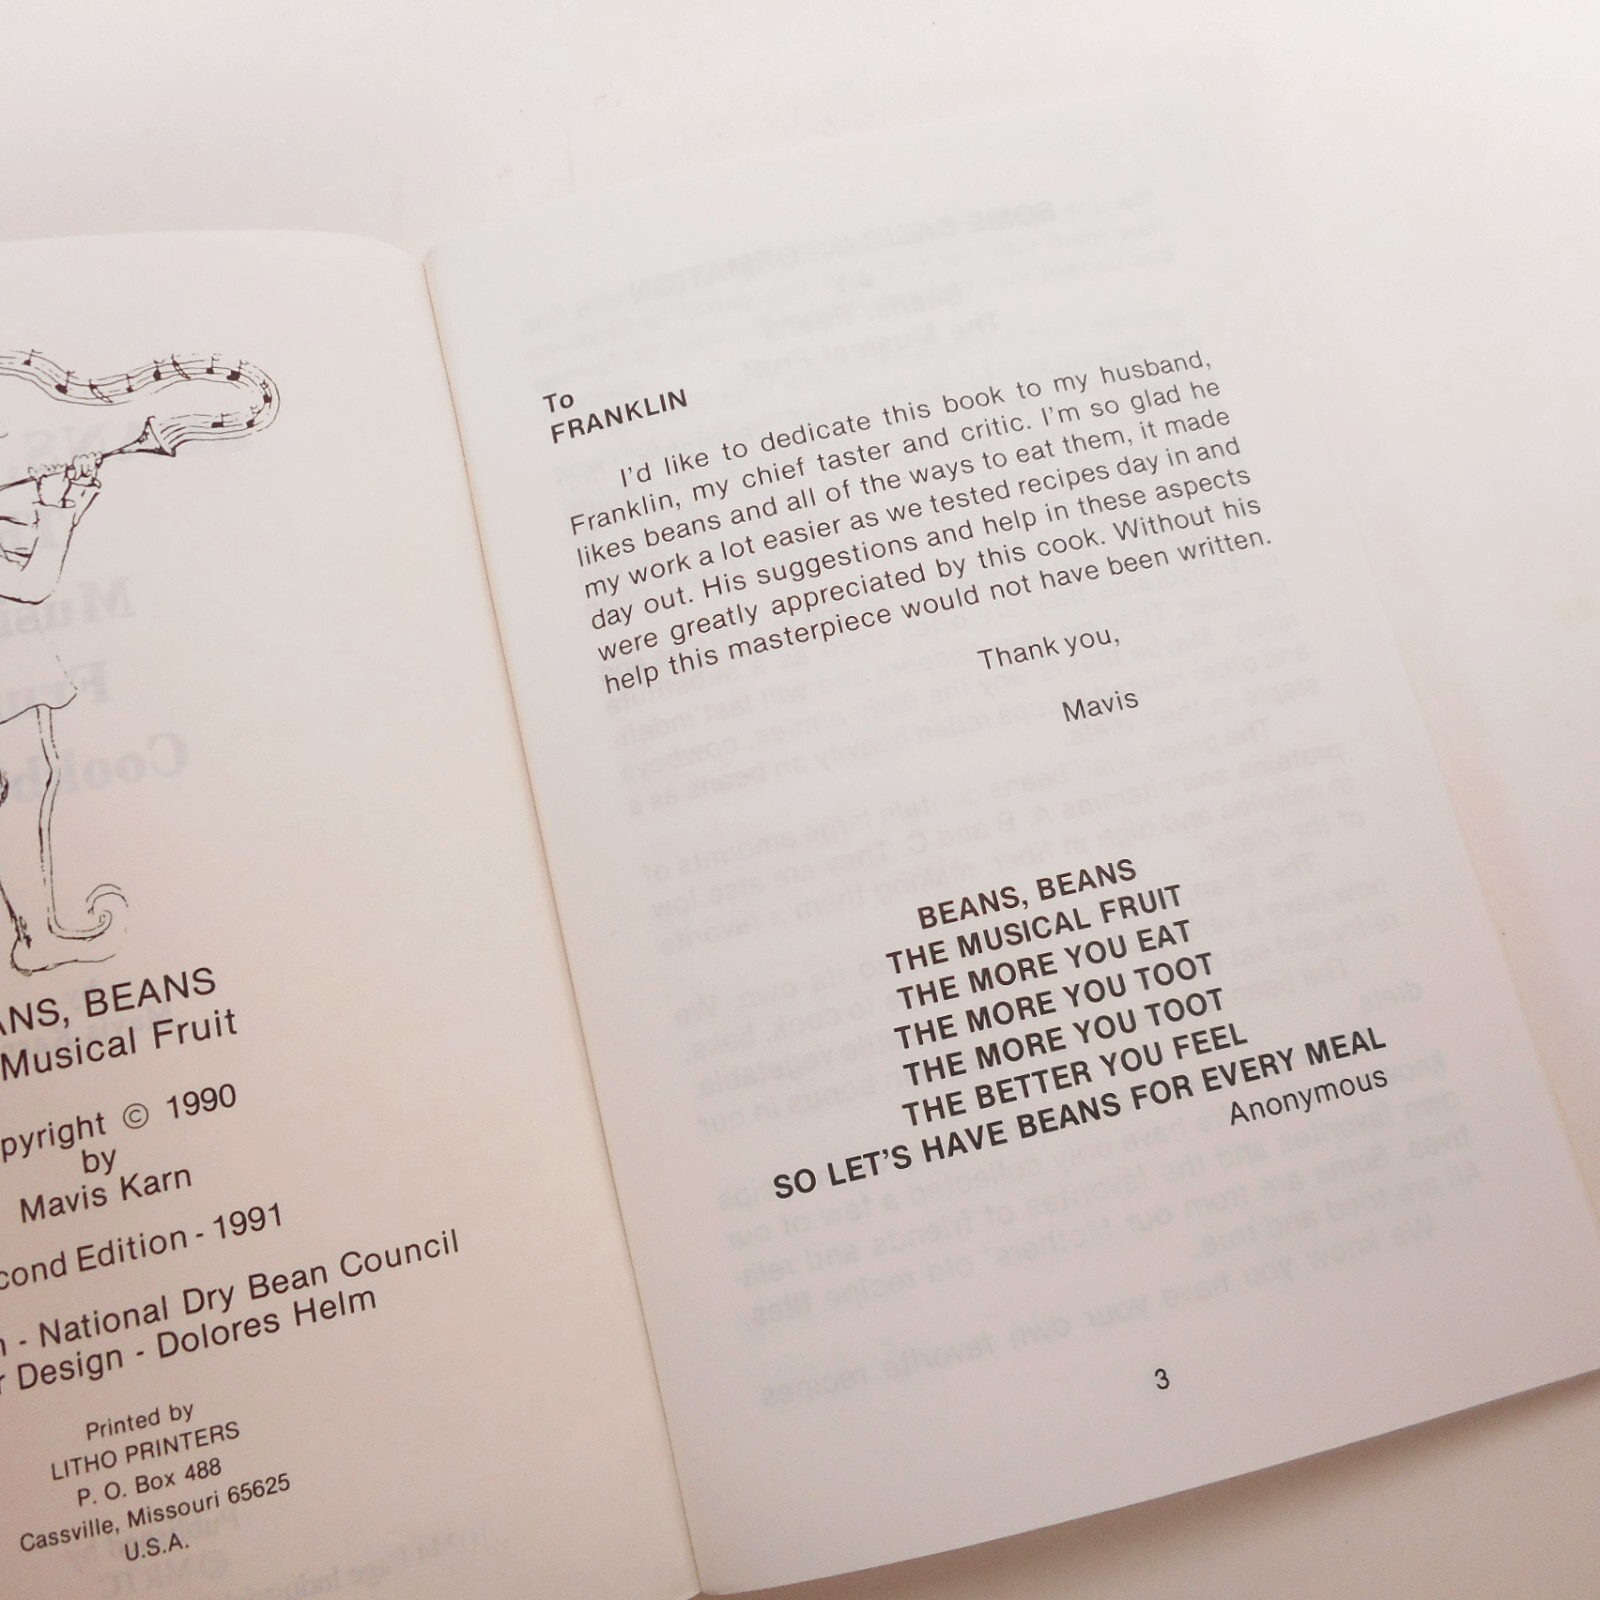 ANS, BEANS
Musical Fruit
pyright © 1990
by
Mavis Karn
cond Edition - 1991
n - National Dry Bean Council
r Design - Dolores Helm
Printed by
LITHO PRINTERS
P. O. Box 488
Cassville, Missouri 65625
U.S.A.
To
FRANKLIN
I'd like to dedicate this book to my husband,
Franklin, my chief taster and critic. I'm so glad he
likes beans and all of the ways to eat them, it made
my work a lot easier as we tested recipes day in and
day out. His suggestions and help in these aspects
were greatly appreciated by this cook. Without his
help this masterpiece would not have been written.
Thank you,
Mavis
BEANS, BEANS
THE MUSICAL FRUIT
THE MORE YOU EAT
THE MORE YOU TOOT
THE MORE YOU TOOT
THE BETTER YOU FEEL
SO LET'S HAVE BEANS FOR EVERY MEAL
Anonymous
3